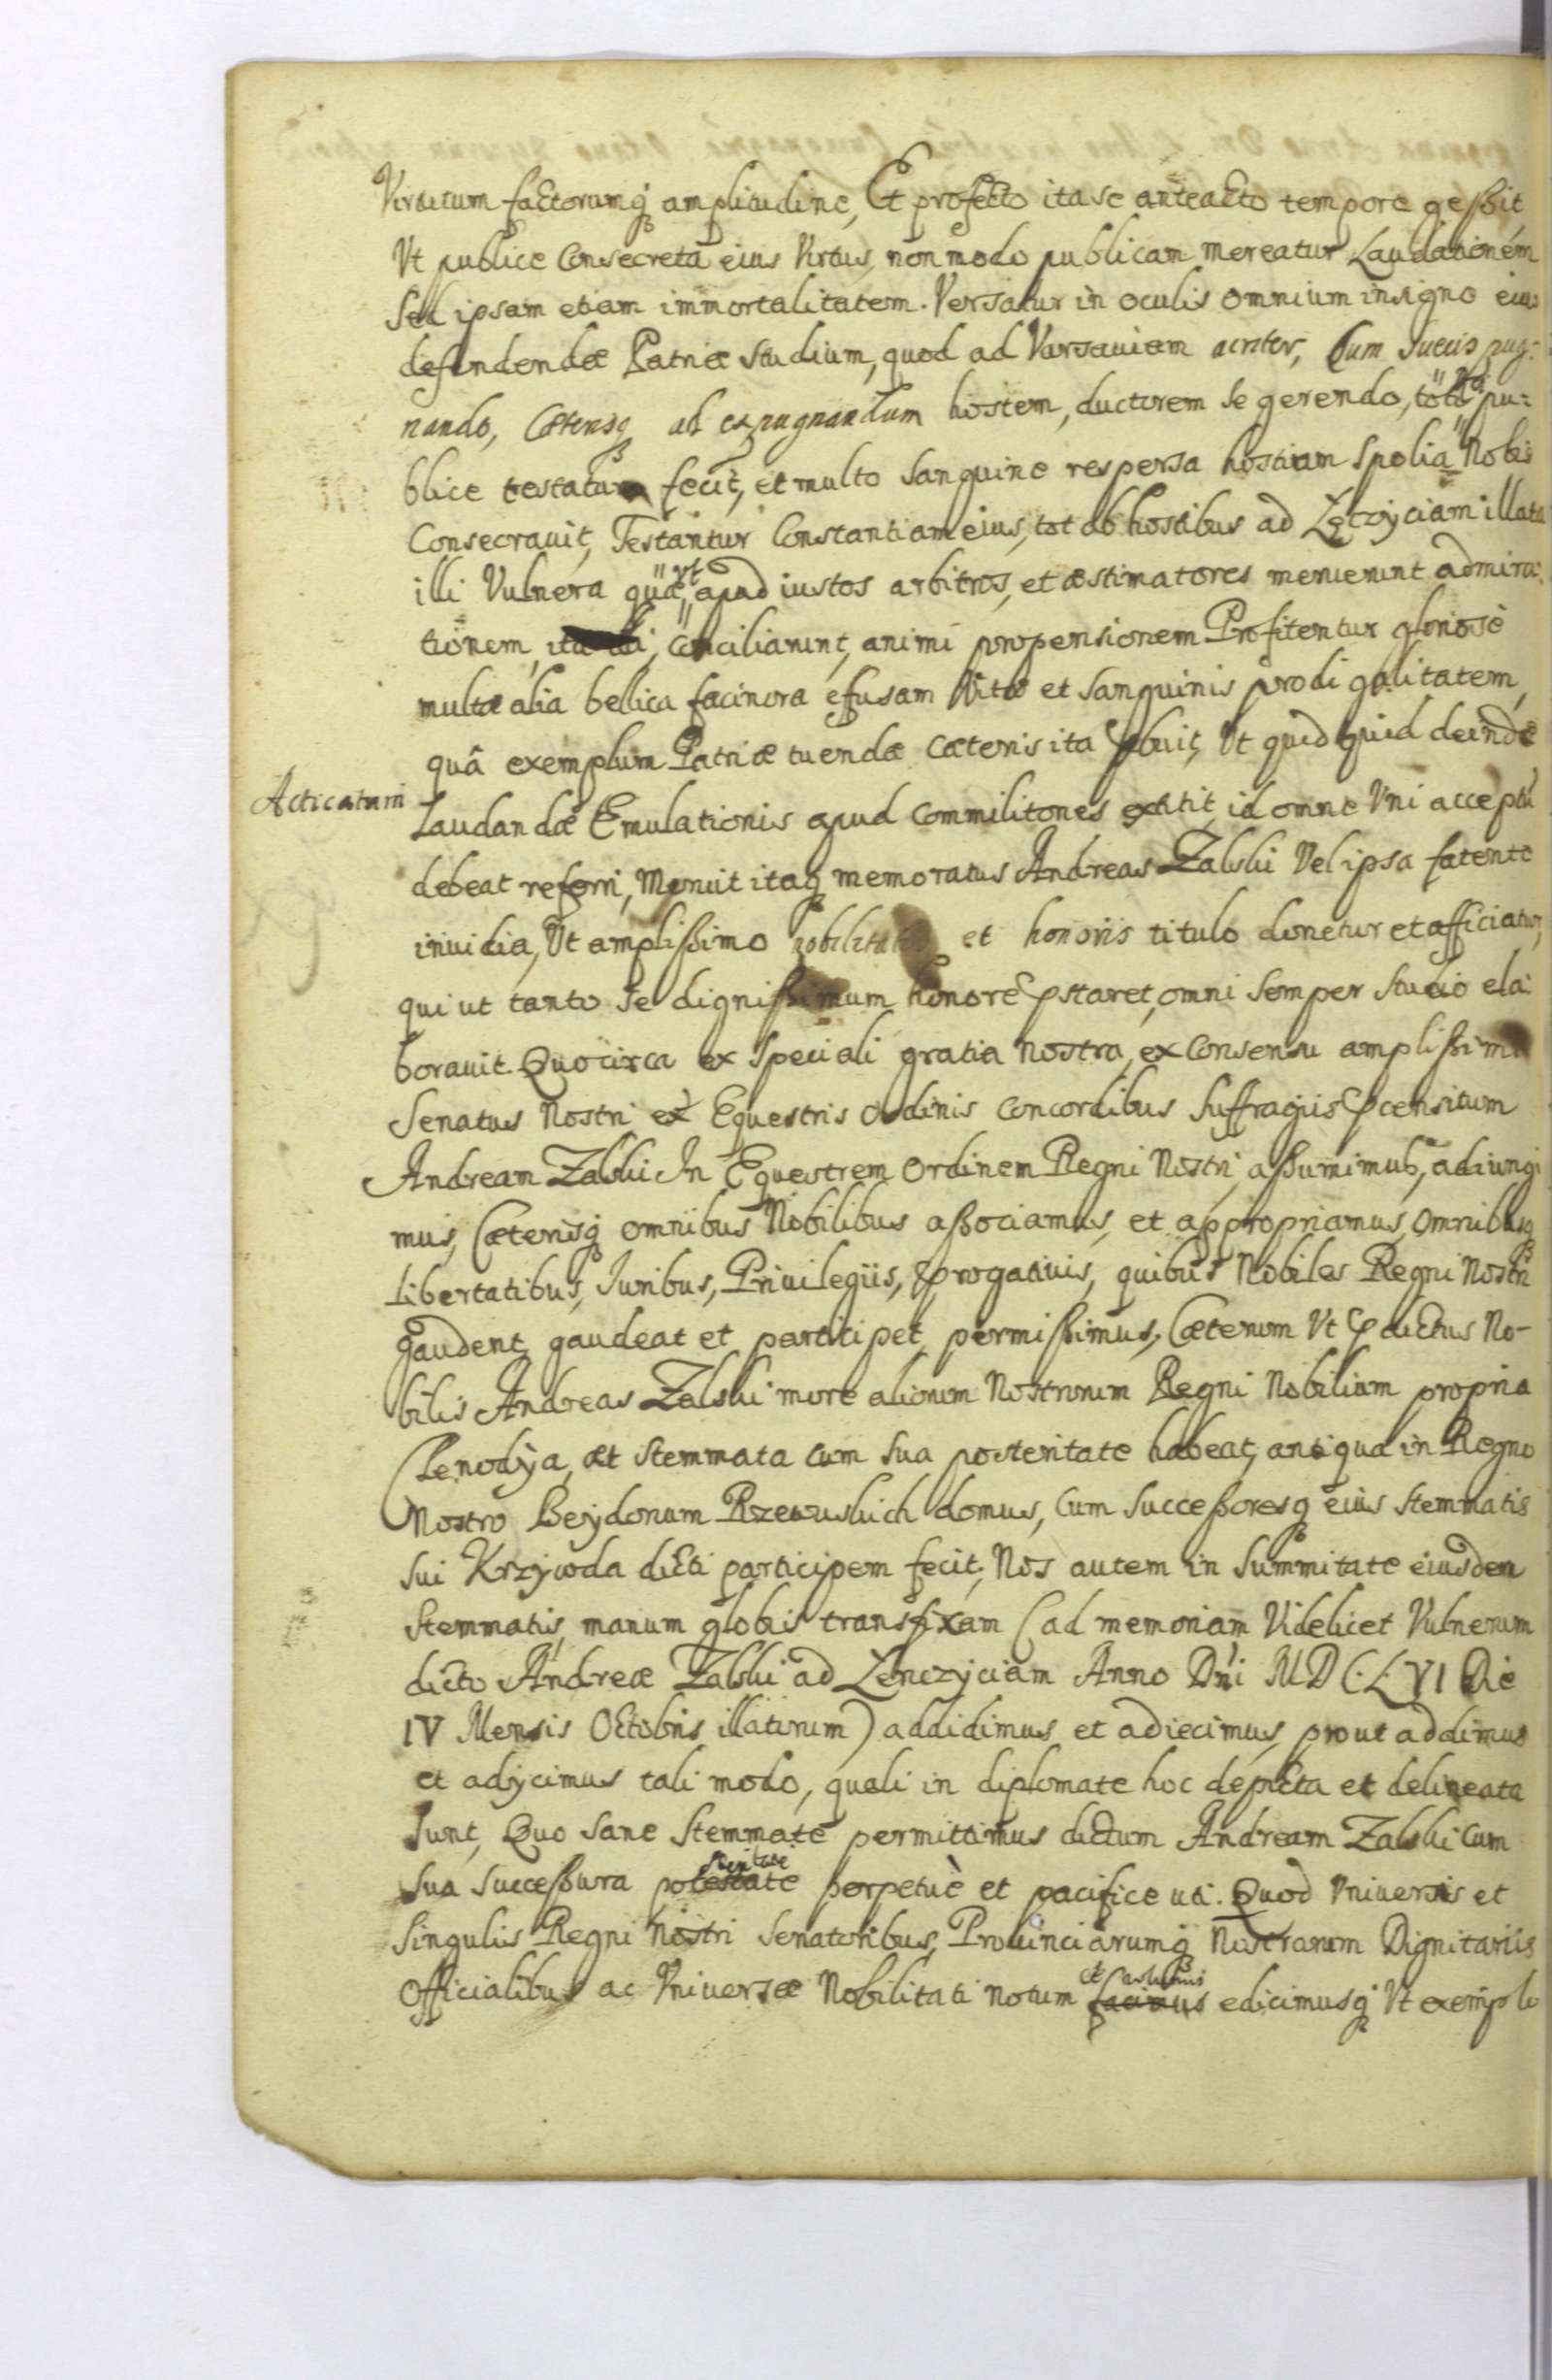 Virtutum factorumq amplitudine, Et profecto ita se anteacto tempore gessit
Vt publice Consecreta eius Virtus, non modo publicam mereatur Laudationem
Sed ipsam etiam immortalitatem. Versatur in oculis omnium insigne eius
defendendæ Patriæ Studium, quod ad Varsauiam acriter, Cum Suecis pug:
nando, Cæterisq ad expugnandum hostem, ductorem se gerendo, pu:
blice testatum fecit, et multo Sanguine respersa hostium Spolia Nobis
Consecrauit, Testantur Constantiam eius, tot ab hostibus ad Lęczyciam illata
illi Vulnera quæ, vt apud iustos arbitros, et æstimatores meruerunt admira:
tionem, ita, Conciliarunt, animi propensionem Profitentur gloriosè
multa alia bellica facinora efusam Vitæ et Sanguinis prodigalitatem,
quâ exemplum Patriæ tuendæ Cæteris ita pbuit, Vt quid quid deinde
Acticatum
Laudandæ Emulationis apud Commilitones extitit, id omne Vni acceptũ
debeat referri, Meruit itaq memoratus Andreas Zalski Vel ipsa fatente
inuidia, Vt amplissimo nobilitatis et honoris titulo donetur et afficiatur,
qui ut tanto se dignissimum honore pstaret, omni semper studio ela:
borauit. Quocirca ex speciali gratia Nostra, ex Consensu amplissimi
Senatus Nostri et Equestris Ordinis Concordibus Suffragiis pcensitum
Andream Zalski In Equestrem Ordinem Regni Nostri, assumimus, adiungi
mus, Cæterisq omnibus Nobilibus associamus, et appropriamus, Omnibusq
Libertatibus, Iuribus, Priuilegiis, progatiuis, quibus Nobiles Regni Nostri
gaudent, gaudeat et participet, permissimus, Cæterum Vt pdictus No-
bilis Andreas Zalski more aliorum Nostrorum Regni Nobilium propria
Clenodya, et Stemmata cum sua posteritate habeat, antiqua in Regno
Nostro Beydonum Rzewuskich domus, Cum Successoresq eius Stemmatis
sui Krzywda dicti participem fecit, Nos autem in Summitate eiusdem
Stemmatis, manum globis transfixam (ad memoriam Videlicet Vulnerum
dicto Andreæ Zalski ad Lenczyciam Anno Dni MDCLVI Die
IV Mensis Octobris illatorum) addidimus et adiecimus, prout addimus
et adycimus tali modo, quali in diplomate hoc depicta et delineata
sunt, Quo sane Stemmate permittimus dictum Andream Zalski cum
steritate
Sua Successura potestate perpetuè et pacifice uti. Quod Vniuersis et
Singulis Regni Nostri Senatoribus, Prouinciarumq Nostrarum Dignitariis
Officialibus ac Vniuersæ Nobilitati notum facimus edicimusq Vt exemplo